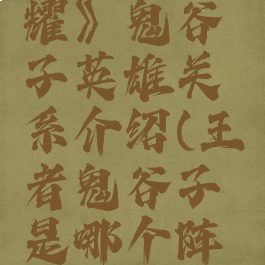 耀》鬼谷
子英雄关
系介绍(王
者鬼谷子
是哪个阵